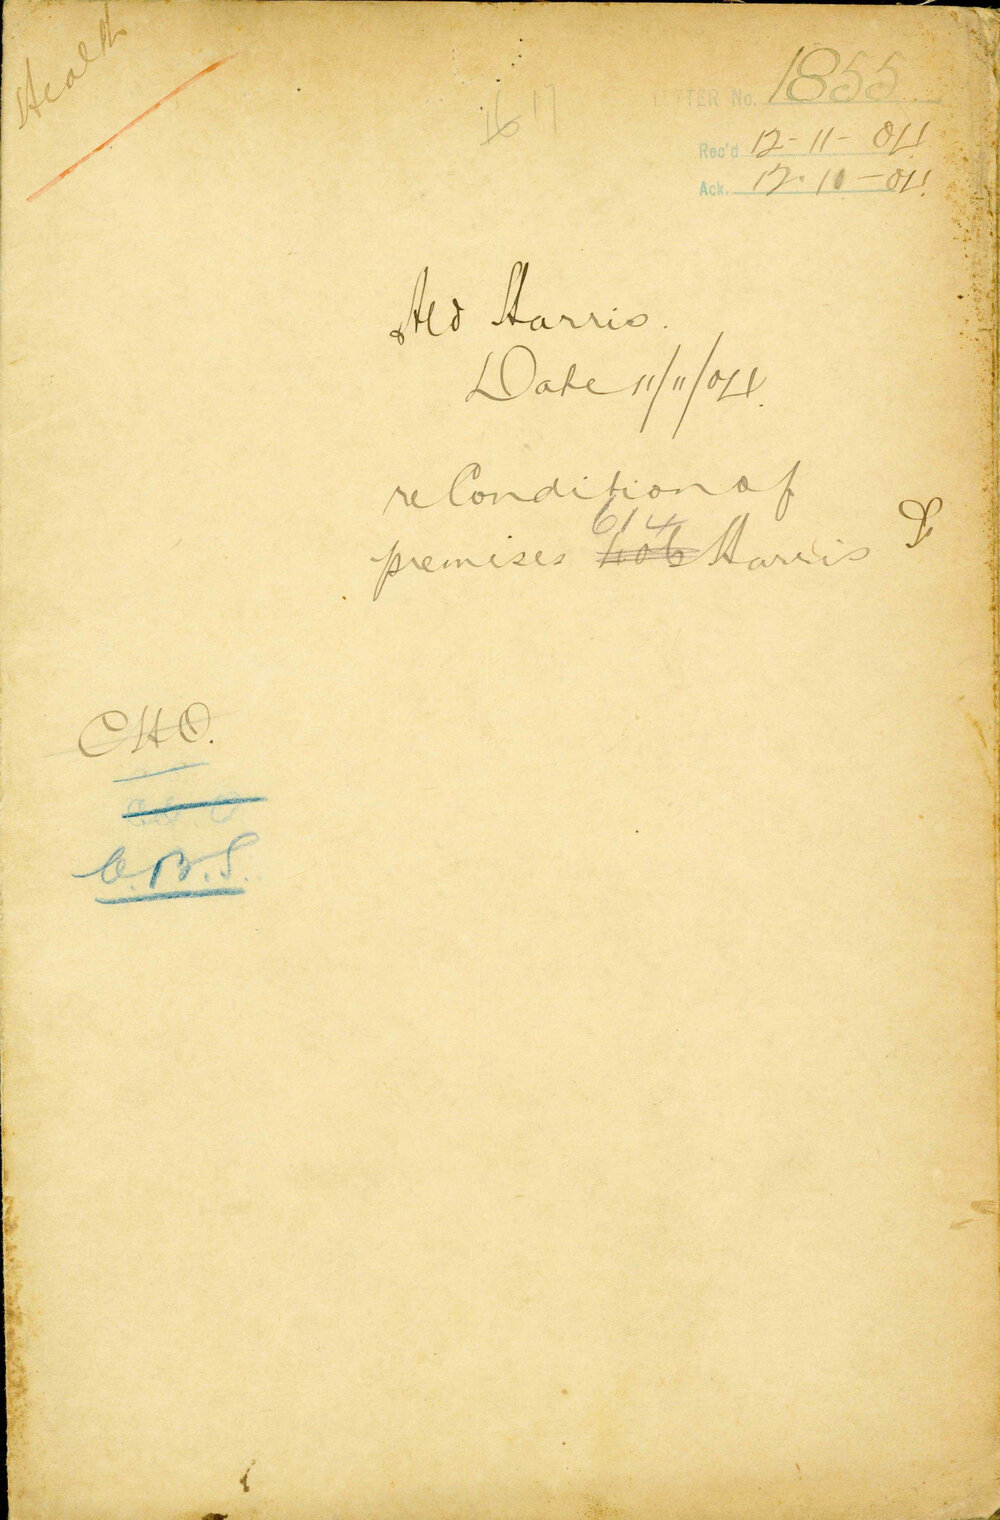 Health
16 17
LETTER No. 1855
Rec'd 12-11-04
Ack. 12-10-04
Ald Harris.
Date 11/11/04.
re Condition of
premises 614 Harris St
CHO.
C.B.S.